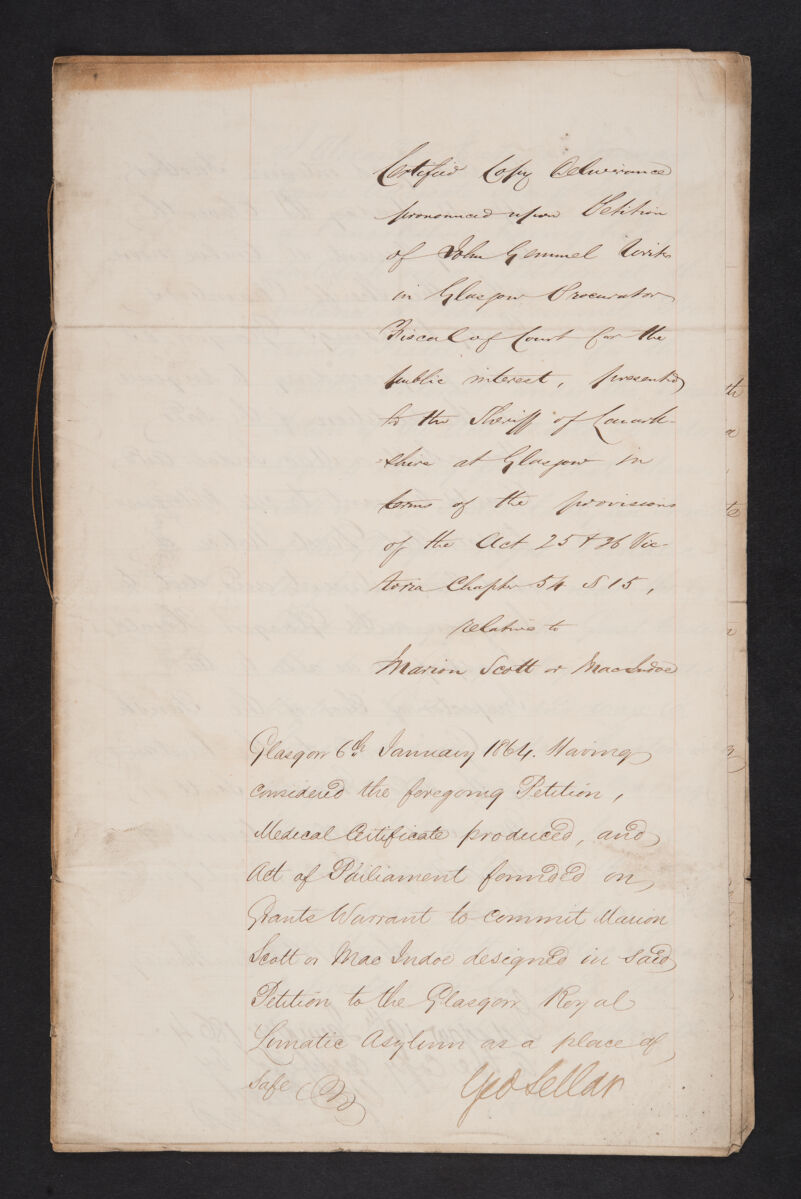 Certified Copy Deliverance
pronounced upon Petition
of John Gemmel Writer
in Glasgow Procurator
Fiscal of Court for the
public interest, presented
to the Sheriff of Lanark-
shire at Glasgow in
terms of the provisions
of the Act 25 & 26 Vic-
toria Chapter 54 S 15,
relative to
Marion Scott or MacIndoe
Glasgow 6th January 1864. Having
considered the foregoing Petition,
Medical Certificate produced, and
Act of Parliament founded on,
Grants Warrant to commit Marion
Scott or Mac Indoe designed in said
Petition to the Glasgow Royal
Lunatic Asylum as a place of
safe
Geo Sellar